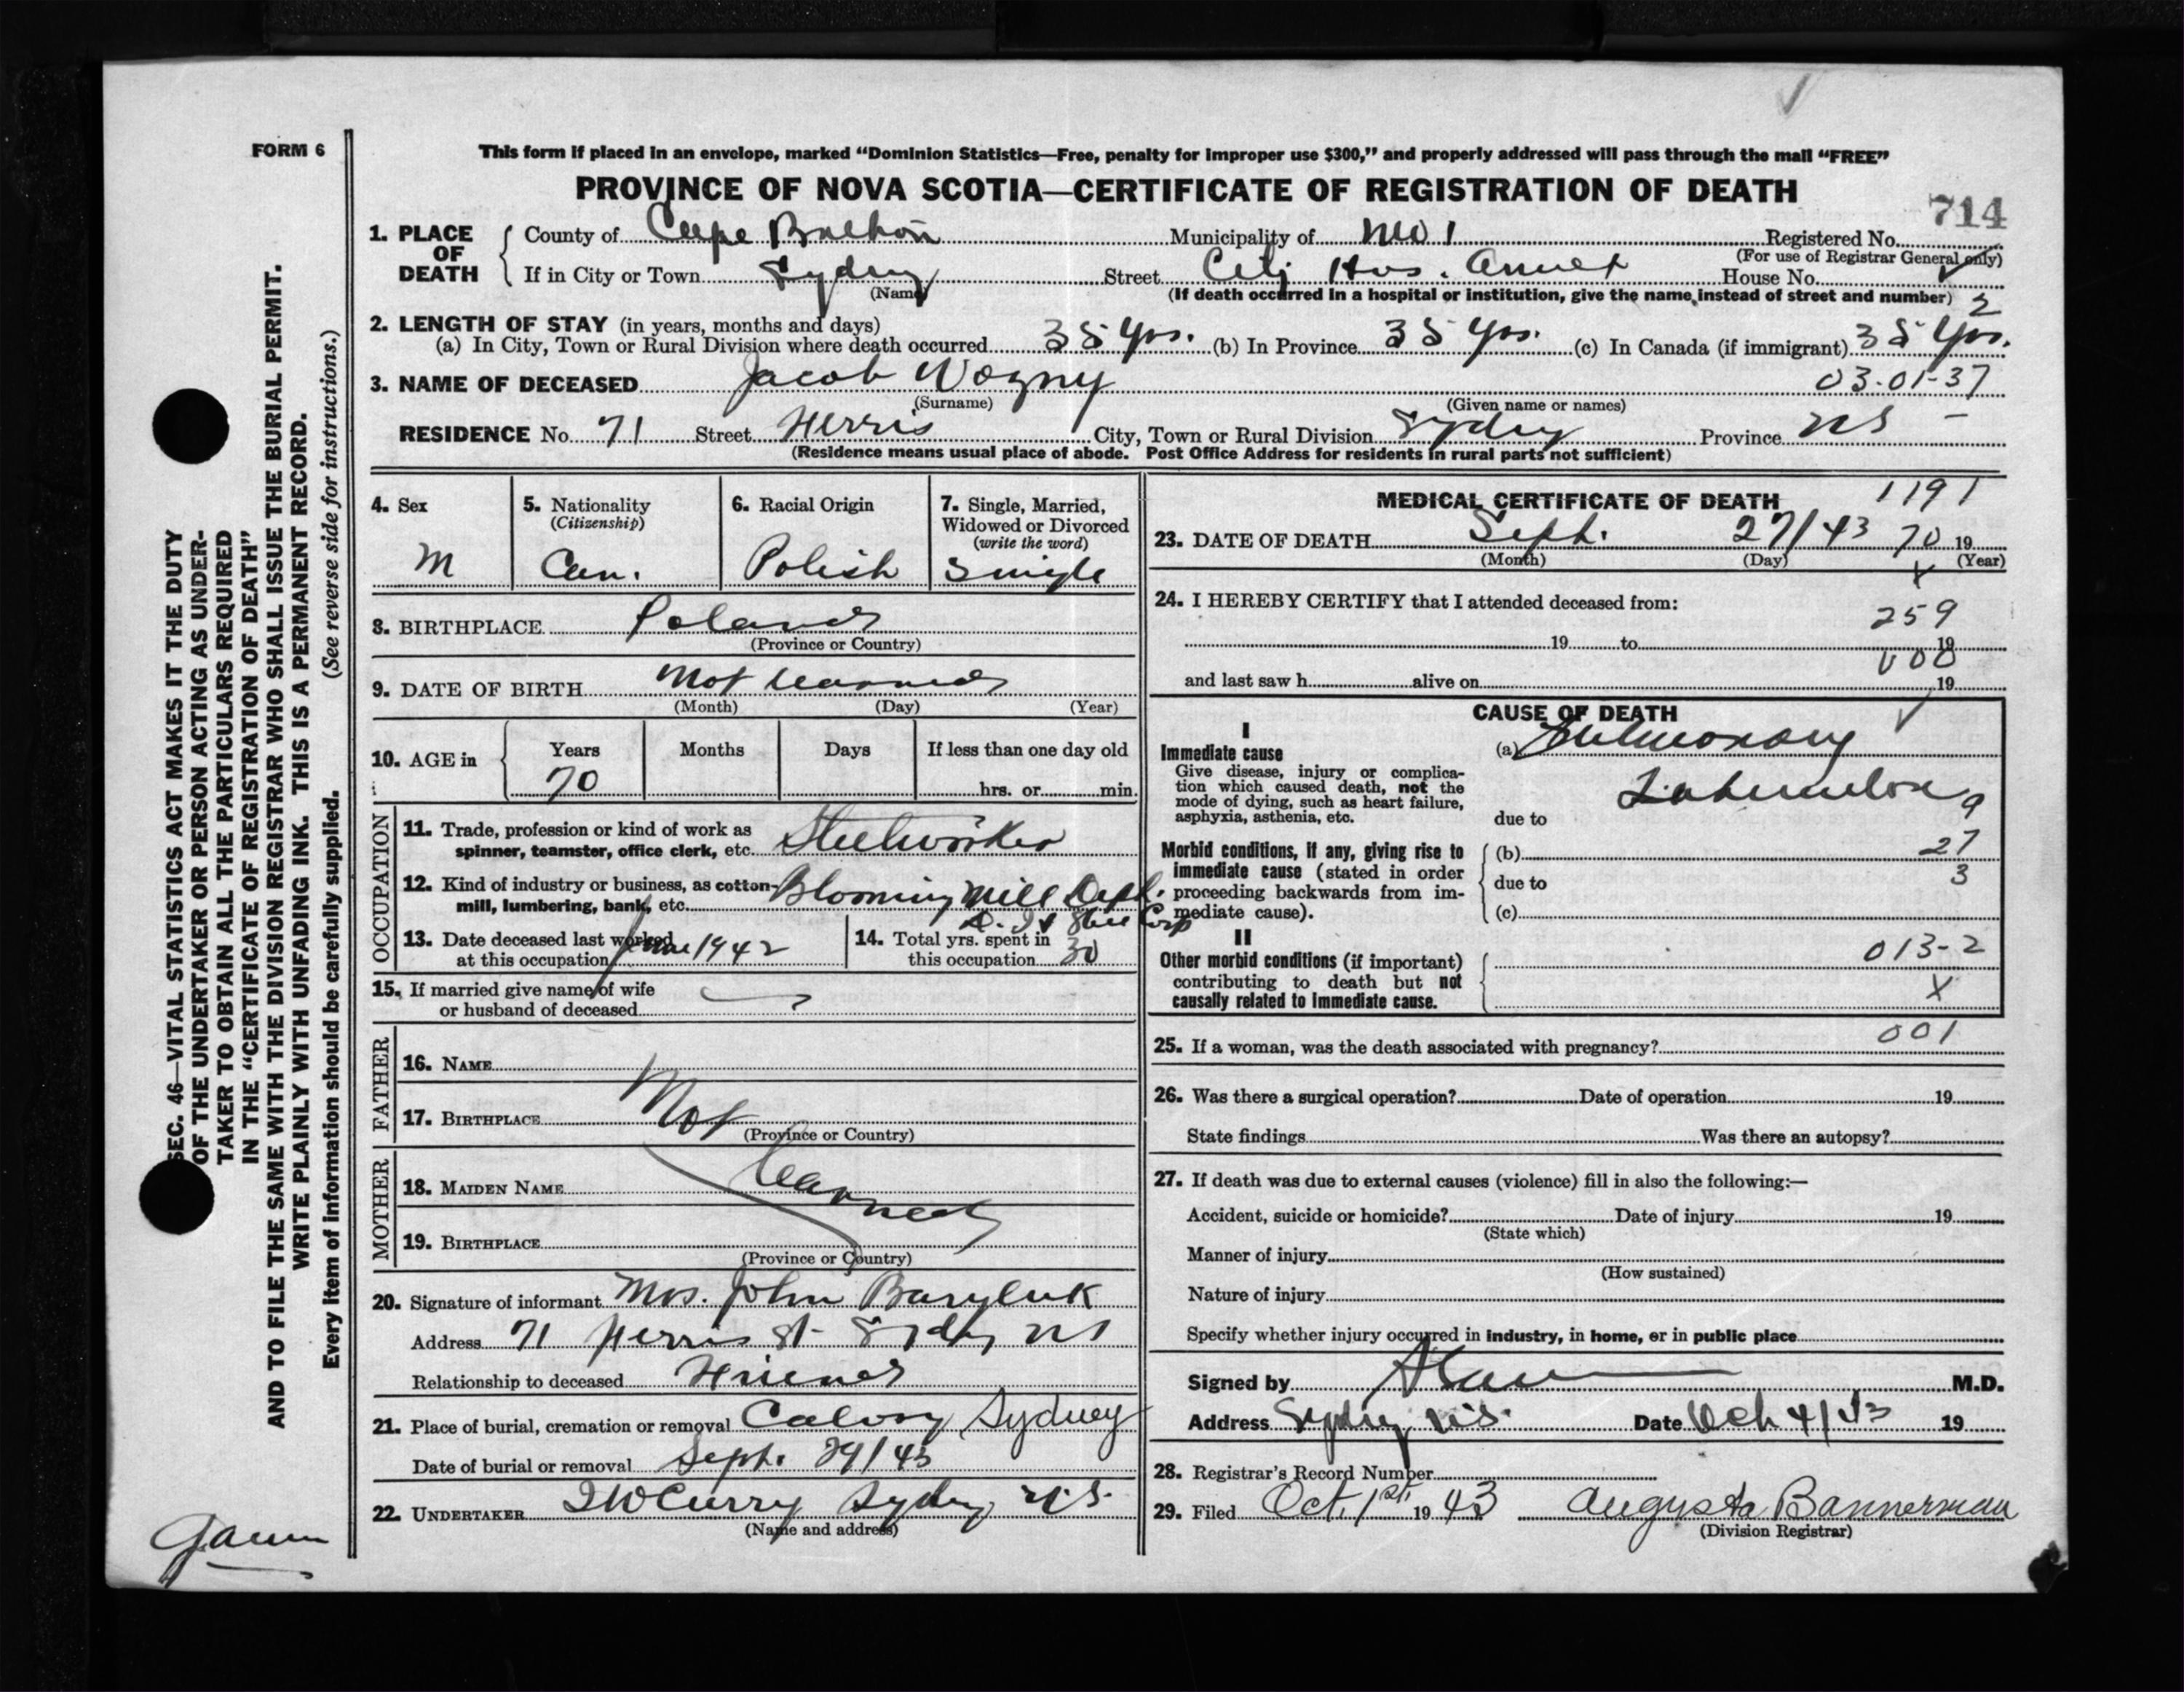 FORM 6
This form if placed in an envelope, marked “Dominion Statistics—Free, penalty for improper use $300,” and properly addressed will pass through the mail “FREE”
PROVINCE OF NOVA SCOTIA—CERTIFICATE OF REGISTRATION OF DEATH
714
1. PLACE OF DEATH { County of Cape Breton Municipality of No 1 Registered No.
(For use of Registrar General only)
If in City or Town Sydney Street City Hos. Annex House No.
(Name) (If death occurred in a hospital or institution, give the name instead of street and number) 2
2. LENGTH OF STAY (in years, months and days)
(a) In City, Town or Rural Division where death occurred 35 Yrs. (b) In Province 35 Yrs. (c) In Canada (if immigrant) 35 Yrs.
3. NAME OF DECEASED Jacob Wozny 03-01-37
(Surname) (Given name or names)
RESIDENCE No. 71 Street Ferris City, Town or Rural Division Sydney Province NS -
(Residence means usual place of abode. Post Office Address for residents in rural parts not sufficient)
4. Sex 5. Nationality (Citizenship) 6. Racial Origin 7. Single, Married, Widowed or Divorced (write the word)
M Can. Polish Single
8. BIRTHPLACE Poland
(Province or Country)
9. DATE OF BIRTH Not learned
(Month) (Day) (Year)
10. AGE in { Years Months Days If less than one day old
70 hrs. or min.
OCCUPATION
11. Trade, profession or kind of work as
spinner, teamster, office clerk, etc. Steelworker
12. Kind of industry or business, as cotton-
mill, lumbering, bank, etc. Blooming Mill Dept.
D. I & Steel Corp
13. Date deceased last worked
at this occupation June 1942
14. Total yrs. spent in
this occupation 30
15. If married give name of wife
or husband of deceased
FATHER
16. NAME
17. BIRTHPLACE Not
(Province or Country)
MOTHER
18. MAIDEN NAME learned
19. BIRTHPLACE
(Province or Country)
20. Signature of informant Mrs. John Baryluk
Address 71 Ferris St Sydney NS
Relationship to deceased Friend
21. Place of burial, cremation or removal Calvary Sydney
Date of burial or removal Sept. 29/43
22. UNDERTAKER T W Curry Sydney N.S.
(Name and address)
MEDICAL CERTIFICATE OF DEATH 1191
23. DATE OF DEATH Sept. 27/43 70 19
(Month) (Day) (Year)
X
24. I HEREBY CERTIFY that I attended deceased from:
259
19 to 19
V00
and last saw h alive on 19
CAUSE OF DEATH
I
Immediate cause (a) Pulmonary
Give disease, injury or complica-
tion which caused death, not the
mode of dying, such as heart failure,
asphyxia, asthenia, etc. due to
9
Morbid conditions, if any, giving rise to
immediate cause (stated in order
proceeding backwards from im-
mediate cause).
(b) 27
due to 3
(c)
II
Other morbid conditions (if important)
contributing to death but not
causally related to immediate cause.
013-2
X
001
25. If a woman, was the death associated with pregnancy?
26. Was there a surgical operation? Date of operation 19
State findings Was there an autopsy?
27. If death was due to external causes (violence) fill in also the following:—
Accident, suicide or homicide? Date of injury 19
(State which)
Manner of injury
(How sustained)
Nature of injury
Specify whether injury occurred in industry, in home, or in public place
Signed by M.D.
Address Sydney N.S. Date Oct 4/43 19
28. Registrar's Record Number
29. Filed Oct. 1st. 1943 Augusta Bannerman
(Division Registrar)
SEC. 46—VITAL STATISTICS ACT MAKES IT THE DUTY
OF THE UNDERTAKER OR PERSON ACTING AS UNDER-
TAKER TO OBTAIN ALL THE PARTICULARS REQUIRED
IN THE “CERTIFICATE OF REGISTRATION OF DEATH”
AND TO FILE THE SAME WITH THE DIVISION REGISTRAR WHO SHALL ISSUE THE BURIAL PERMIT.
WRITE PLAINLY WITH UNFADING INK. THIS IS A PERMANENT RECORD.
Every item of information should be carefully supplied. (See reverse side for instructions.)